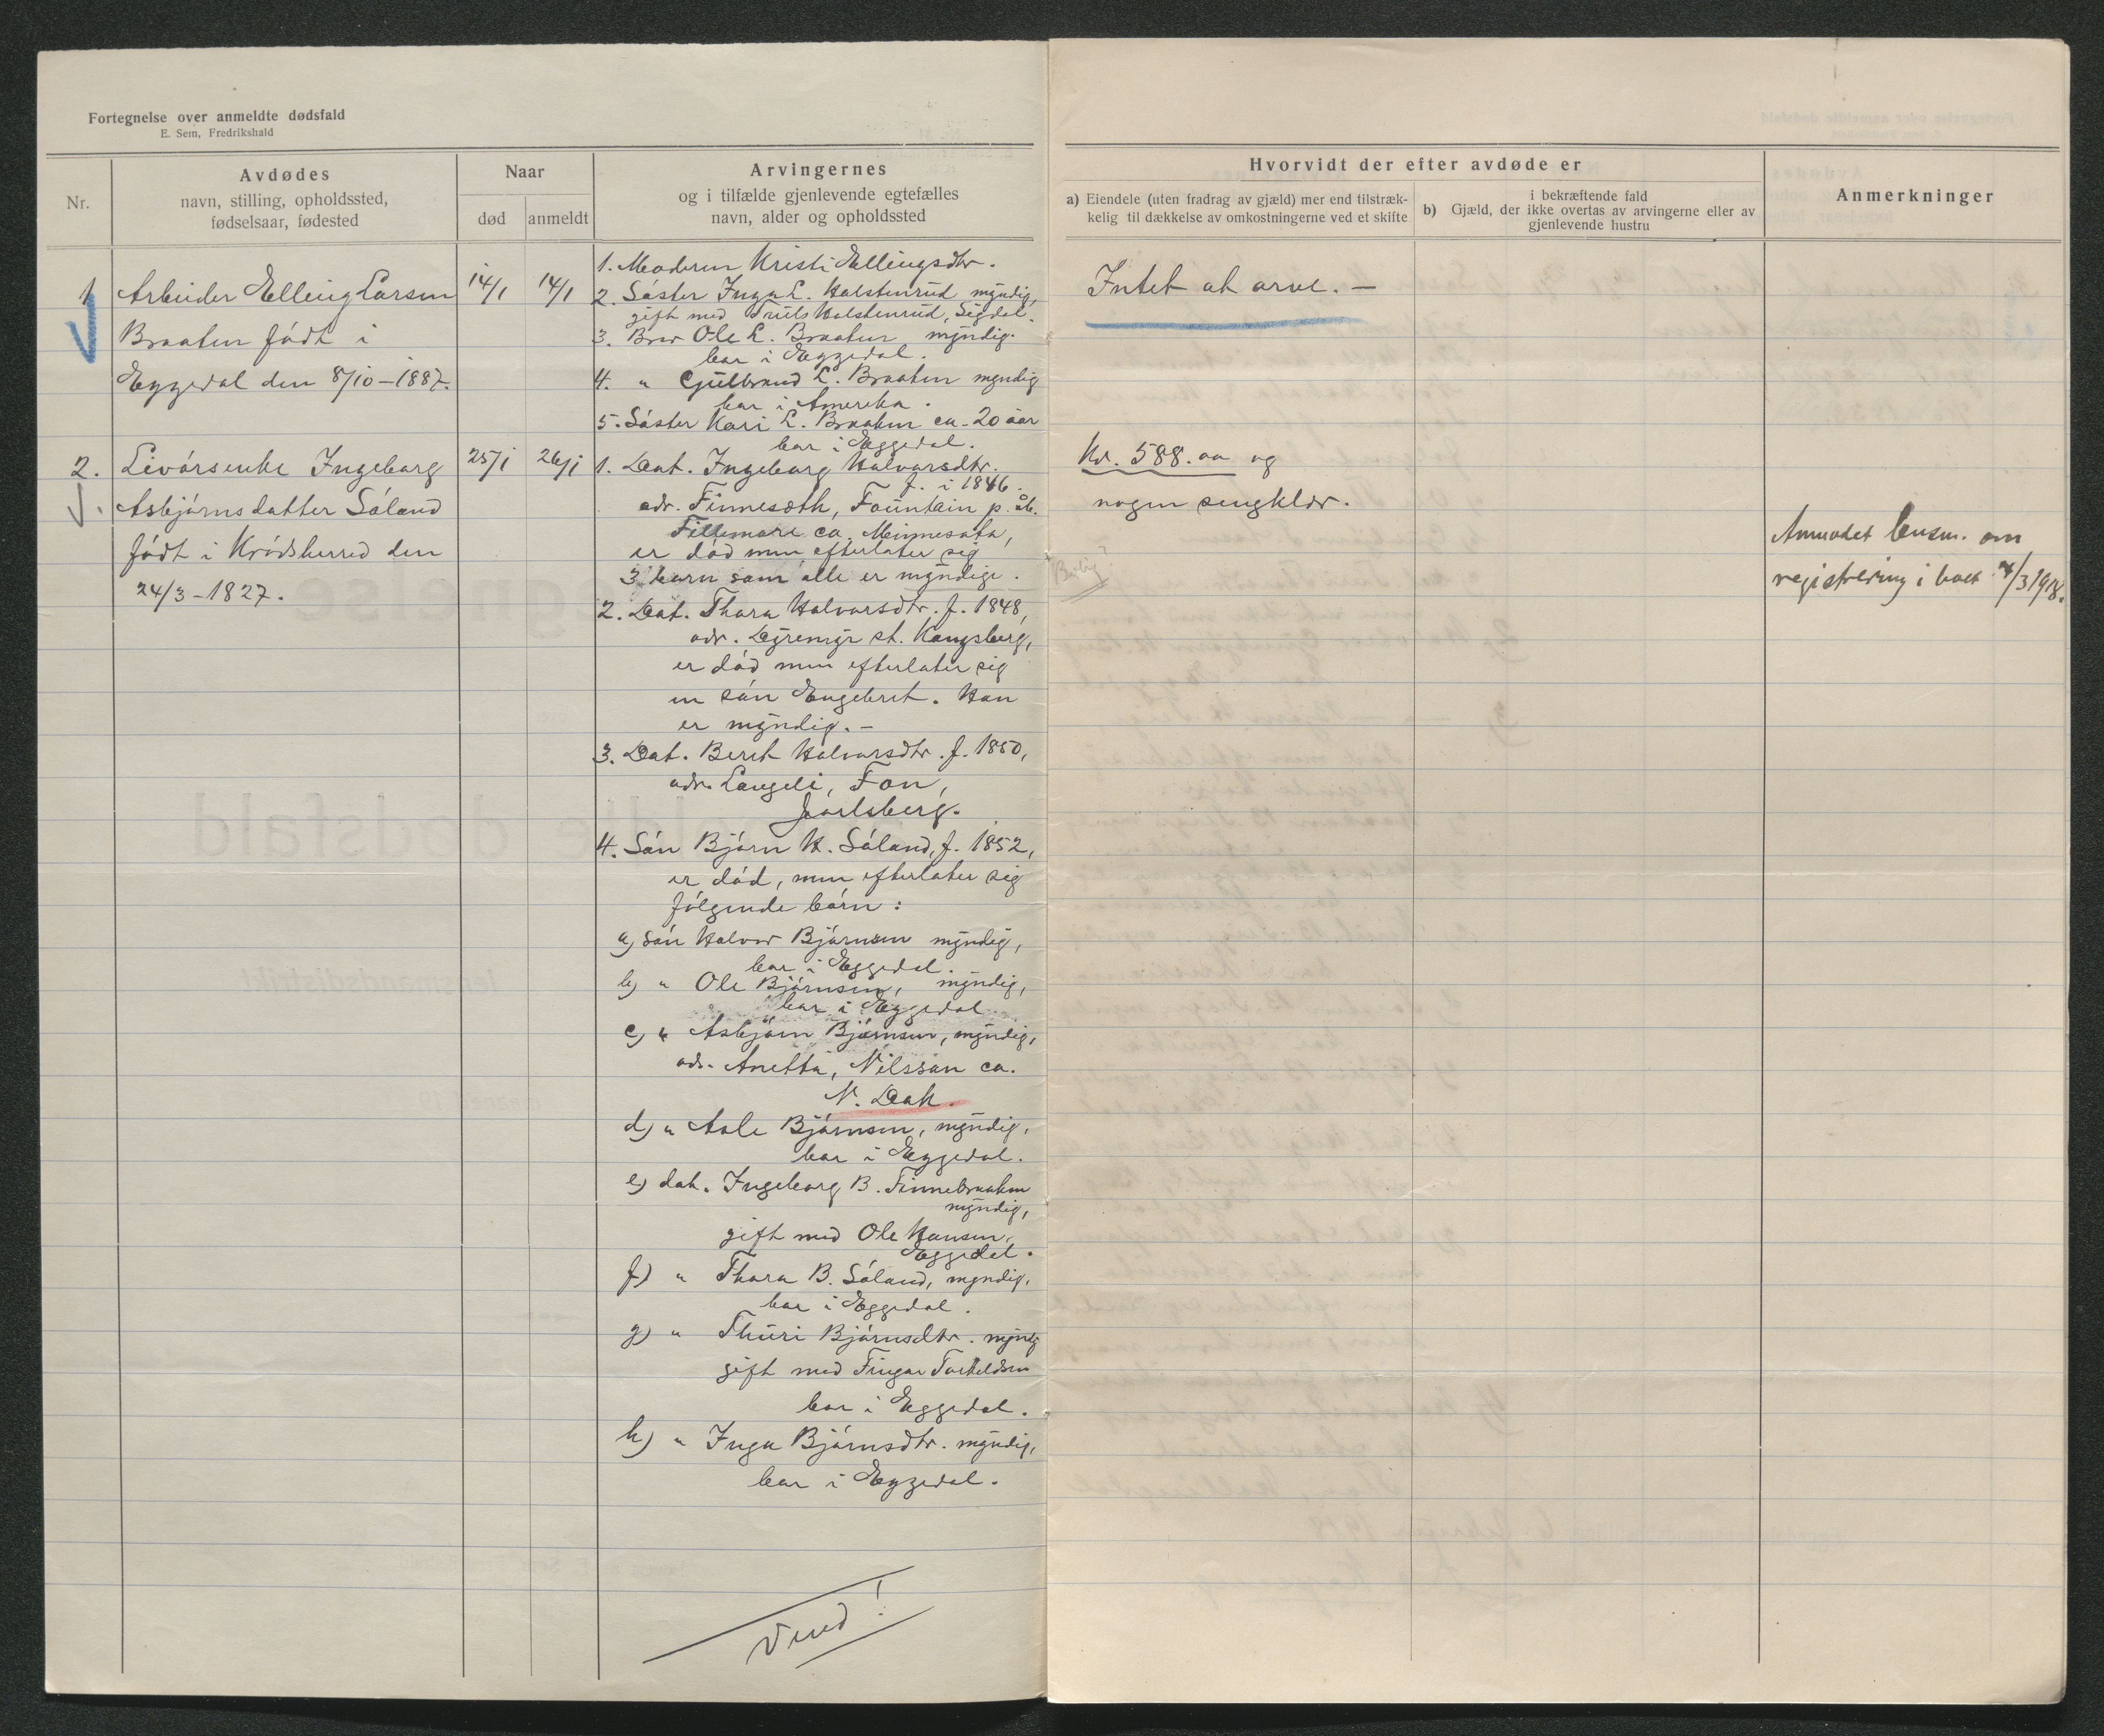 Fortegnelse over anmeldte dødsfald
E. Sem, Fredrikshald
Nr.
Avdødes
navn, stilling, opholdssted,
fødselsaar, fødested
Naar
død
anmeldt
Arvingernes
og i tilfælde gjenlevende egtefælles
navn, alder og opholdssted
1
Arbeider Elling Larsen
Braaten født i
Eggedal den 8/10-1887.
14/1
14/1
1. Moderen Kristi Ellingsdtr.
2. Søster Inga L. Halstenrud myndig,
gift med Truls Halstenrud, Sigdal.
3. Bror Ole L. Braaten myndig.
bor i Eggedal.
4. " Gulbrand L. Braaten myndig
bor i Amerika.
5. Søster Kari L. Braaten ca. 20 aar
bor i Eggedal.
2.
Livørsenke Ingeborg
Asbjørnsdatter Søland
født i Krødsherred den
24/3-1827.
25/1
26/1
1. Dat. Ingeborg Halvorsdtr.
f. i 1846.
adr. Finneseth, Fountain p. åb.
Fillemore ca. Minnesota,
er død men efterlater sig
3 barn som alle er myndige.
2. Dat. Thora Halvorsdtr. f. 1848,
adr. Dyremyr st. Kongsberg,
er død men efterlater sig
en søn Engebret. Han
er myndig. —
3. Dat. Berit Halvorsdtr. f. 1850,
adr. Langeli, Fon,
Jarlsberg.
4. Søn Bjørn H. Søland, f. 1852,
er død, men efterlater sig
følgende børn:
a) søn Halvor Bjørnsen myndig,
bor i Eggedal.
b) " Ole Bjørnsen, myndig,
bor i Eggedal
c) " Asbjørn Bjørnsen, myndig,
adr. Anetta, Nilsson ca.
N. Dak.
d) " Aale Bjørnsen, myndig,
bor i Eggedal.
e) dat. Ingeborg B. Finnebraaten
myndig,
gift med Ole Hansen,
Eggedal.
f) " Thora B. Søland, myndig,
bor i Eggedal.
g) " Thuri Bjørnsdtr. myndig
gift med Fingar Torkeldsen
bor i Eggedal.
h) " Inga Bjørnsdtr. myndig,
bor i Eggedal.
Vend!
Hvorvidt der efter avdøde er
a) Eiendele (uten fradrag av gjæld) mer end tilstræk-
kelig til dækkelse av omkostningerne ved et skifte
i bekræftende fald
b) Gjæld, der ikke overtas av arvingerne eller av
gjenlevende hustru
Anmerkninger
Intet at arve. —
Kr. 588.00 og
nogen sengklær.
Anmodet lensm. om
registrering i boet 7/3 1918.